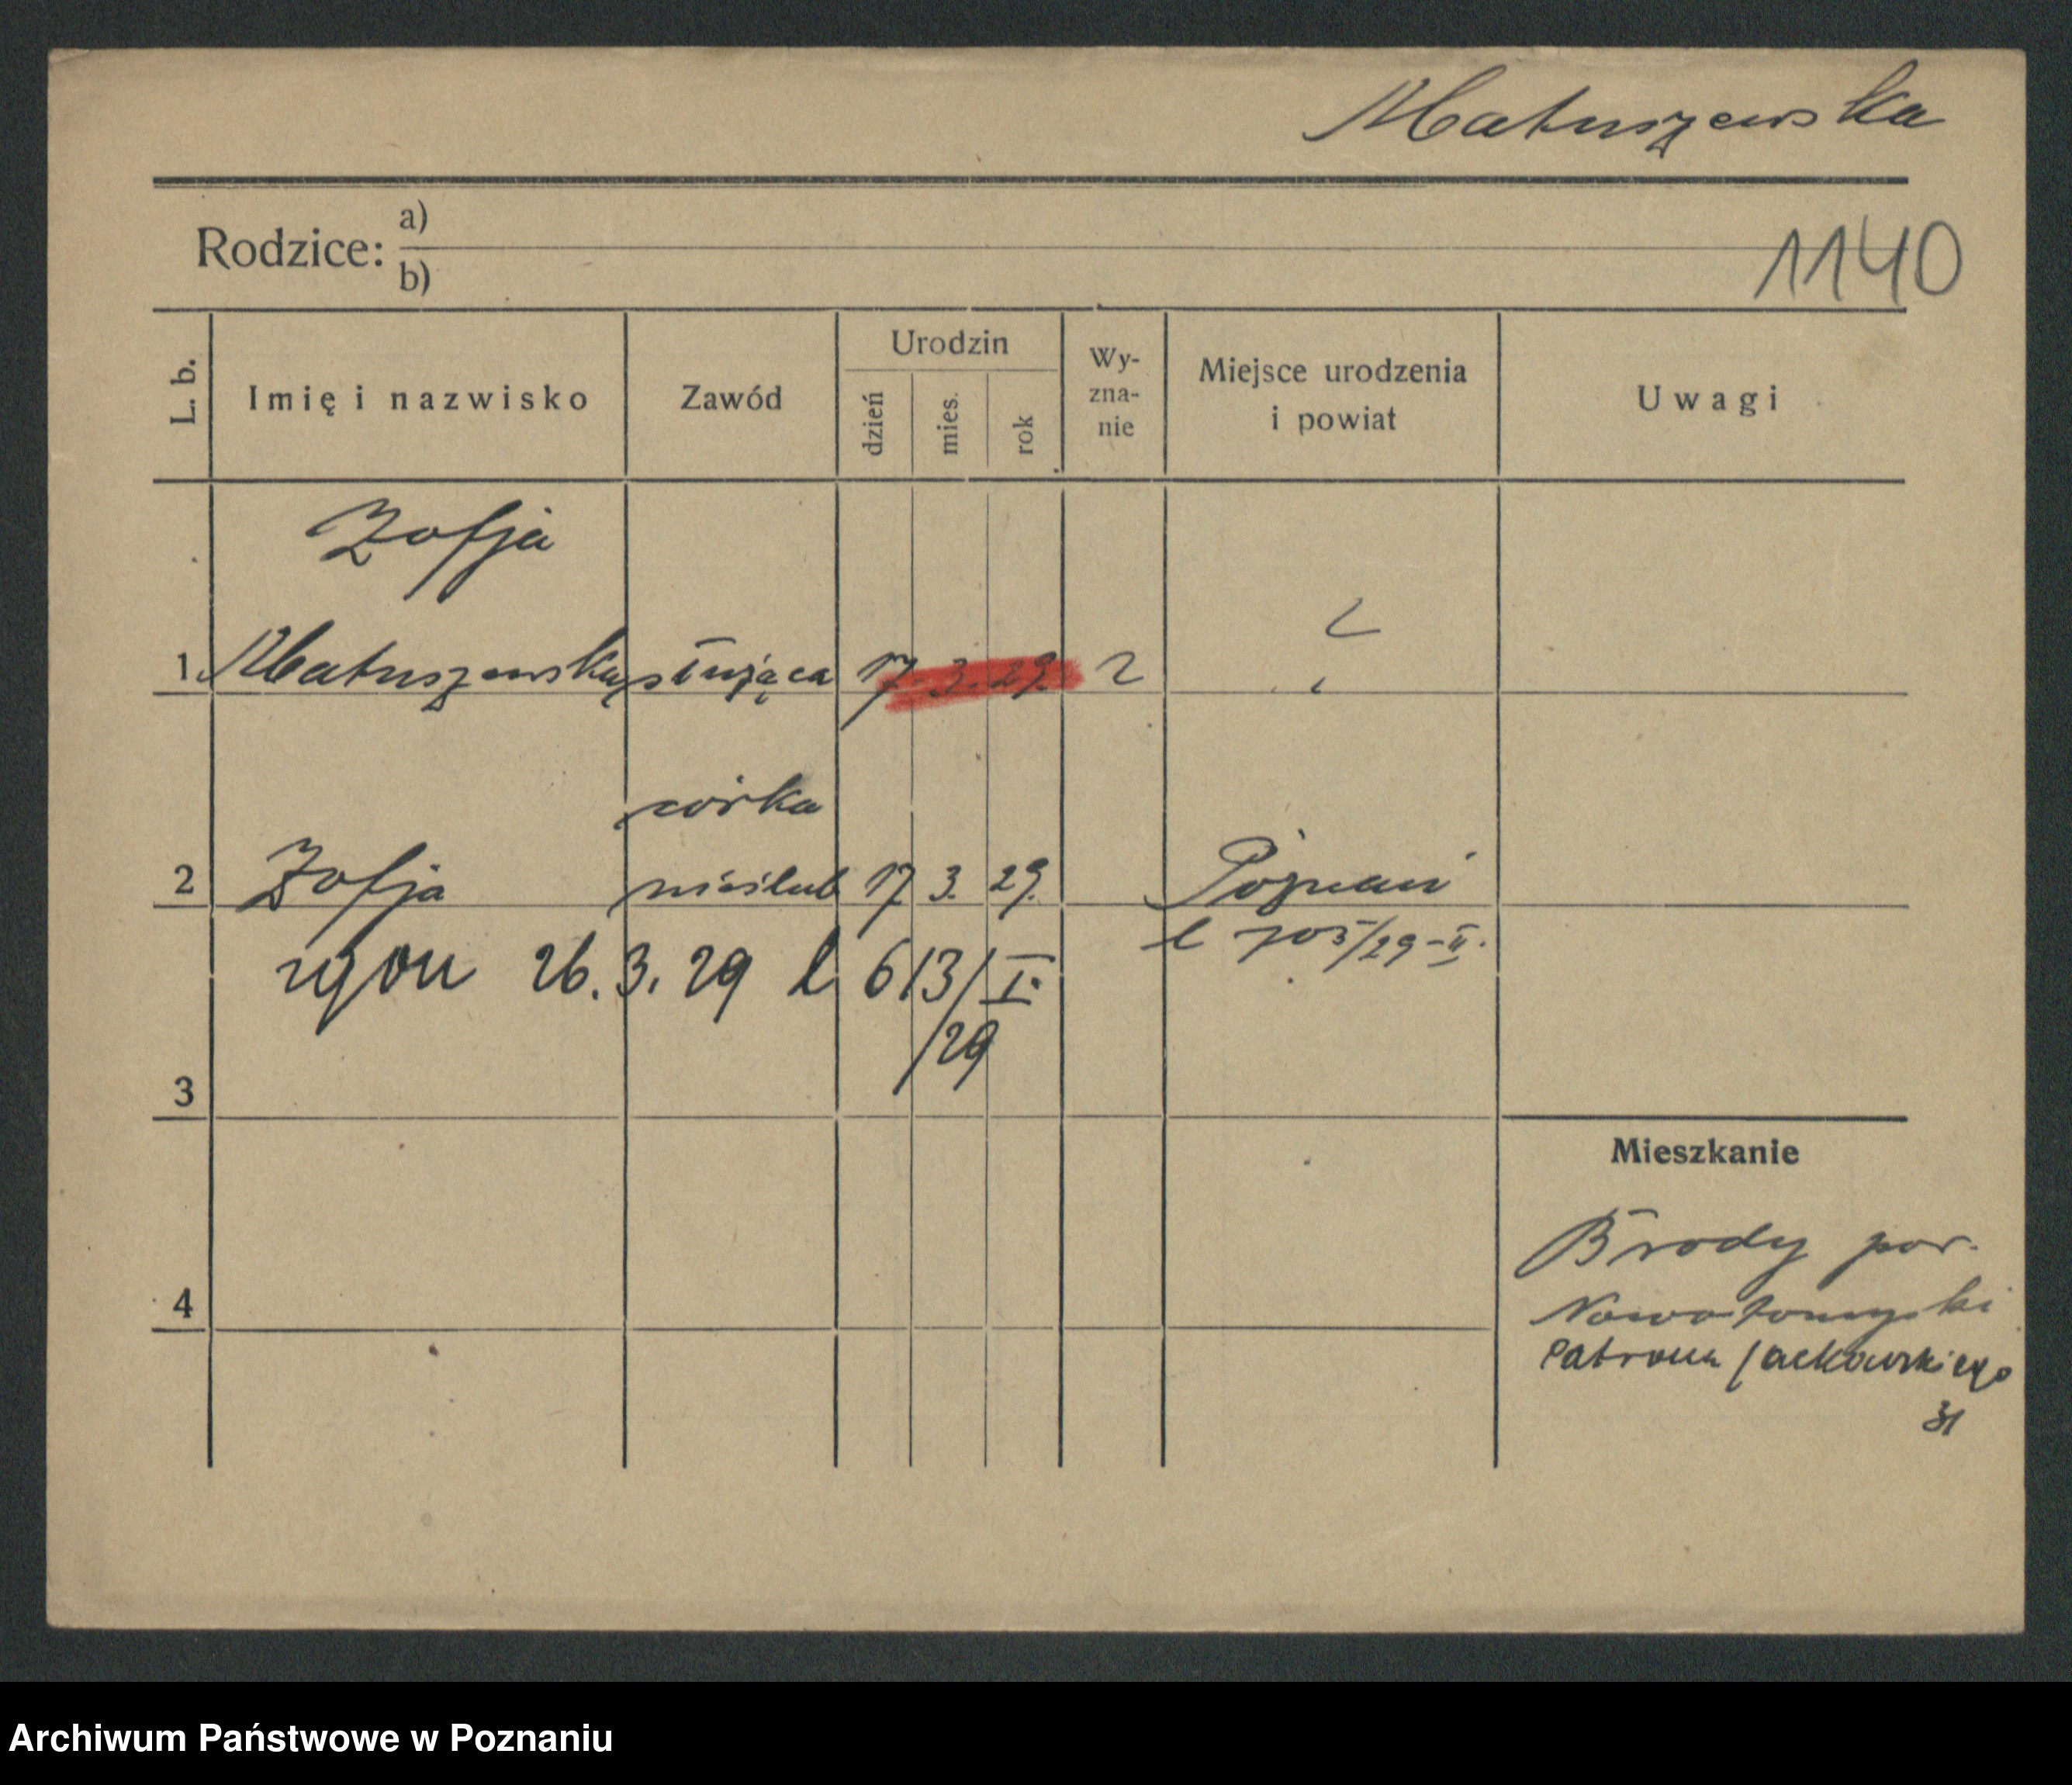 Matuszewska
Rodzice: a)
b)
1140
L. b.
Imię i nazwisko
Zawód
Urodzin
dzień
mies.
rok
Wy-
zna-
nie
Miejsce urodzenia
i powiat
Uwagi
Zofja
1 Matuszewska służąca 17. 3. 29.
córka
2 Zofja nieślub 17 3. 29. Poznań
l 705/29-II.
zgon 26. 3. 29 l 613/I.
/29
3
Mieszkanie
Brody pow.
4 Nowotomyski
Patrona Jackowskiego
31
Archiwum Państwowe w Poznaniu